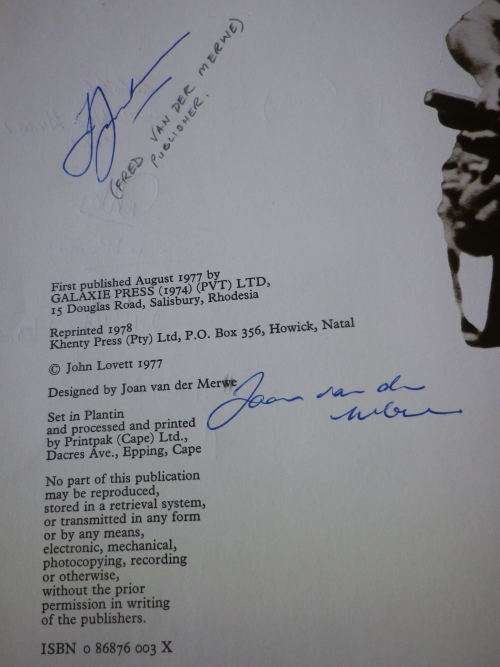 (FRED VAN DER MERWE)
PUBLISHER.
First published August 1977 by
GALAXIE PRESS (1974) (PVT) LTD,
15 Douglas Road, Salisbury, Rhodesia
Reprinted 1978
Khenty Press (Pty) Ltd, P.O. Box 356, Howick, Natal
© John Lovett 1977
Designed by Joan van der Merwe
Joan van der
Merwe
Set in Plantin
and processed and printed
by Printpak (Cape) Ltd.,
Dacres Ave., Epping, Cape
No part of this publication
may be reproduced,
stored in a retrieval system,
or transmitted in any form
or by any means,
electronic, mechanical,
photocopying, recording
or otherwise,
without the prior
permission in writing
of the publishers.
ISBN 0 86876 003 X